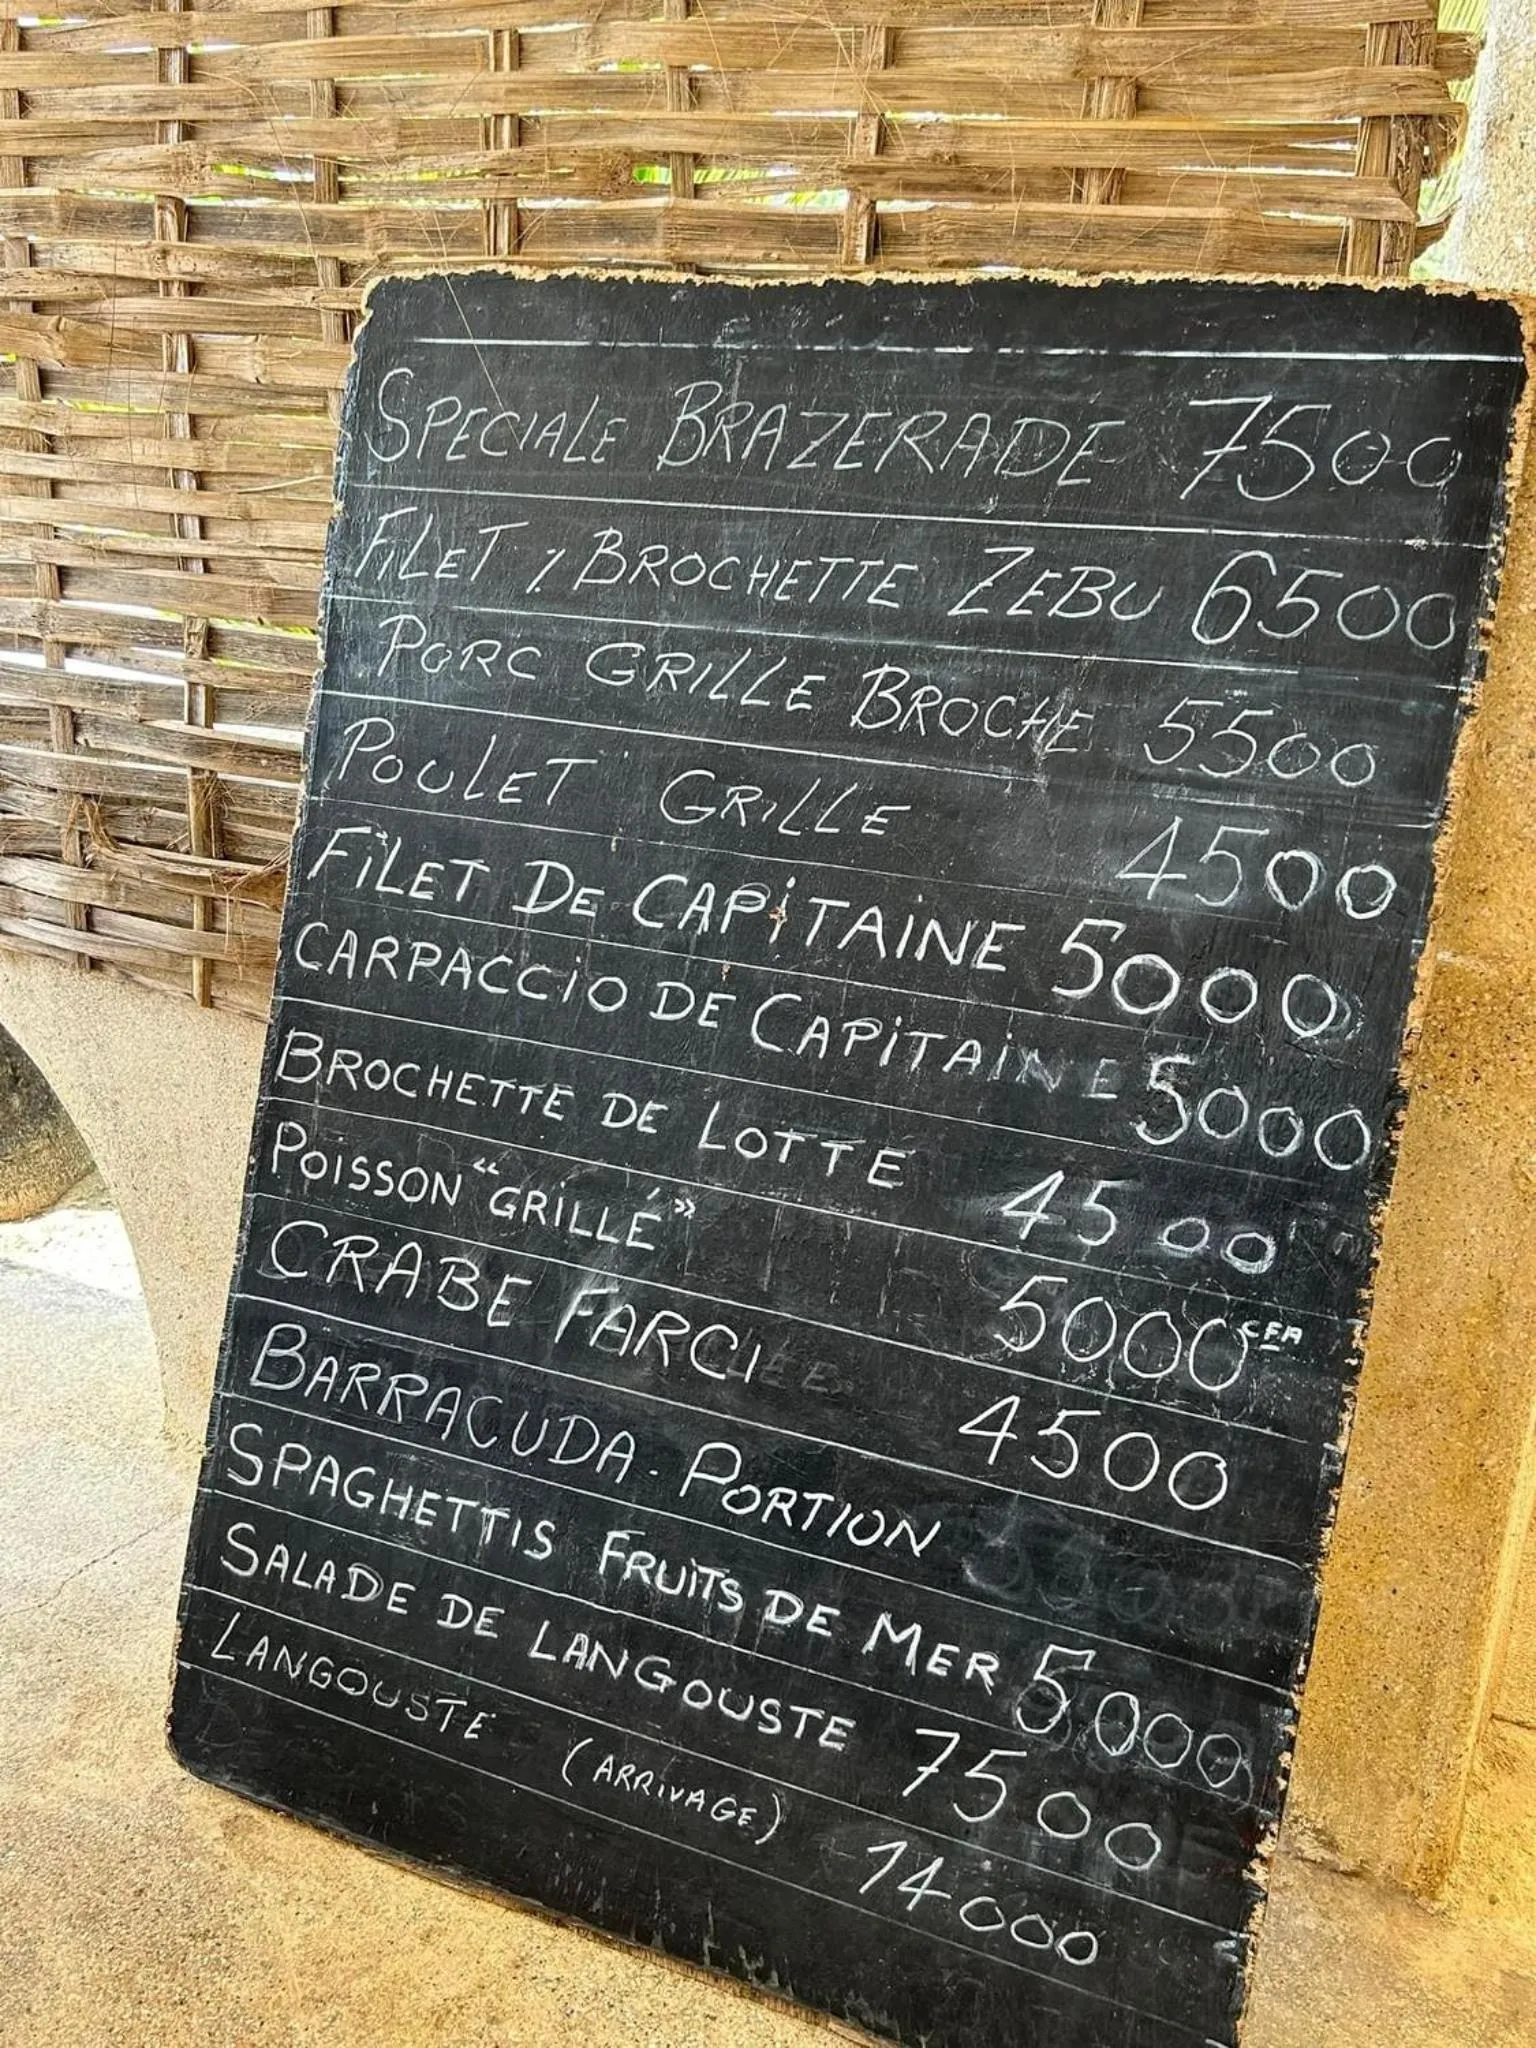 SPECIALE BRAZERADE 7500
FILET % BROCHETTE ZEBU 6500
PORC GRILLE BROCHE 5500
POULET GRILLE 4500
FILET DE CAPITAINE 5000
CARPACCIO DE CAPITAINE 5000
BROCHETTE DE LOTTE 4500
POISSON "GRILLÉ" 5000 CFA
CRABE FARCI 4500
BARRACUDA. PORTION
SPAGHETTIS FRUITS DE MER 5000
SALADE DE LANGOUSTE 7500
LANGOUSTE (ARRIVAGE) 14000